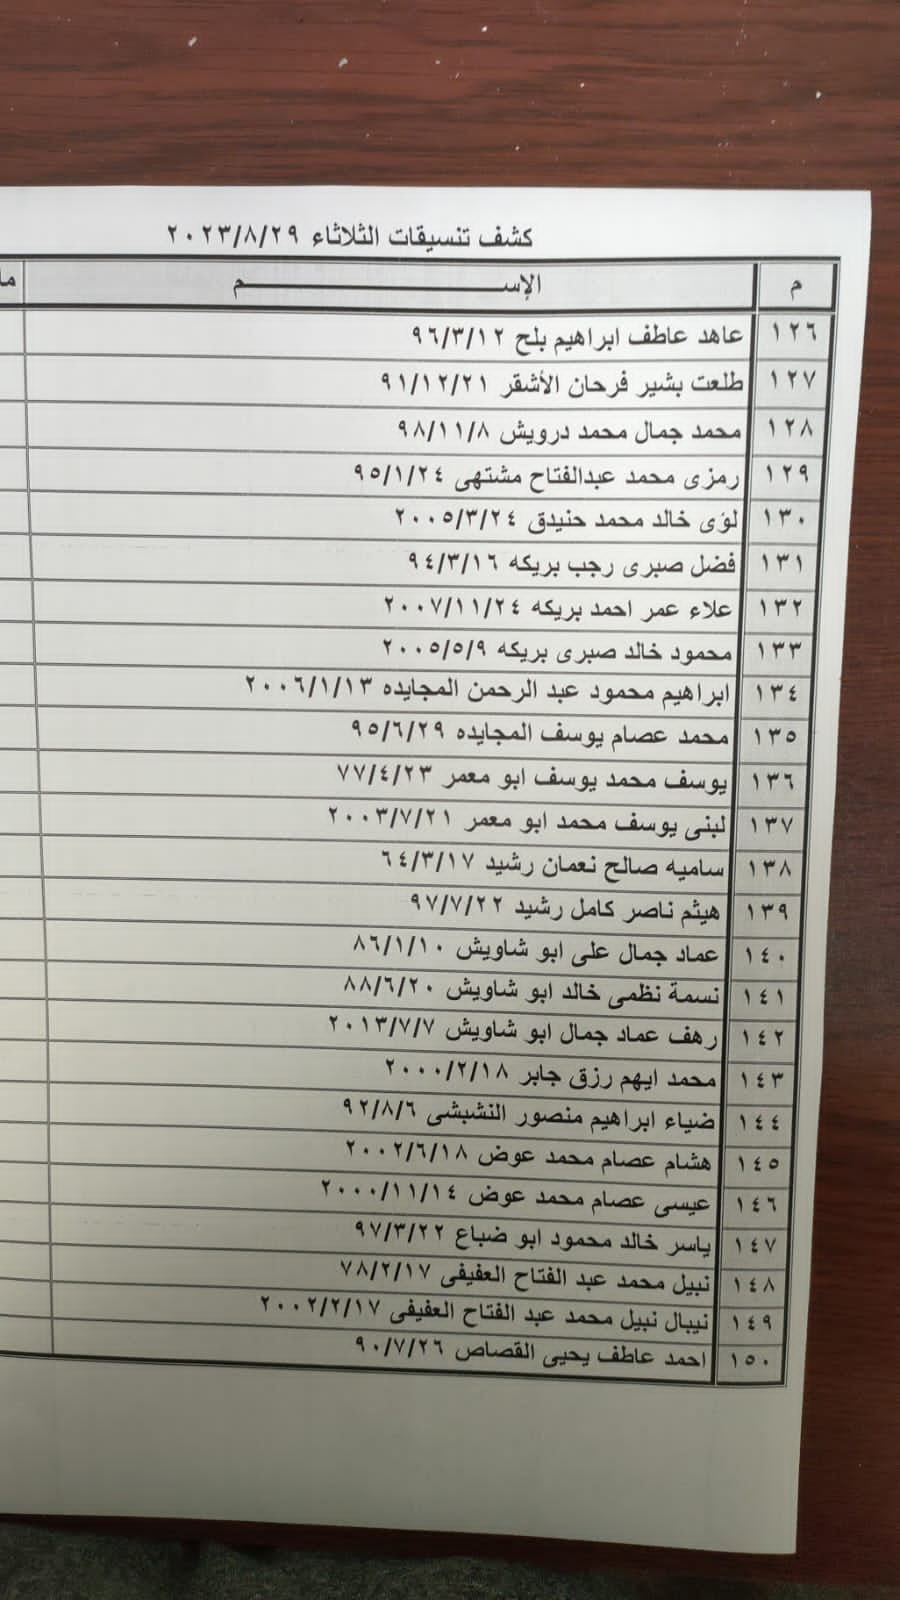 كشف تنسيقات الثلاثاء ٢٠٢٣/٨/٢٩
م الإســـــــــــــــــم ما
١٢٦ عاهد عاطف ابراهيم بلح ٩٦/٣/١٢
١٢٧ طلعت بشير فرحان الأشقر ٩١/١٢/٢١
١٢٨ محمد جمال محمد درويش ٩٨/١١/٨
١٢٩ رمزى محمد عبدالفتاح مشتهى ٩٥/١/٢٤
١٣٠ لؤى خالد محمد حنيدق ٢٠٠٥/٣/٢٤
١٣١ فضل صبرى رجب بريكه ٩٤/٣/١٦
١٣٢ علاء عمر احمد بريكه ٢٠٠٧/١١/٢٤
١٣٣ محمود خالد صبرى بريكه ٢٠٠٥/٥/٩
١٣٤ ابراهيم محمود عبد الرحمن المجايده ٢٠٠٦/١/١٣
١٣٥ محمد عصام يوسف المجايده ٩٥/٦/٢٩
١٣٦ يوسف محمد يوسف ابو معمر ٧٧/٤/٢٣
١٣٧ لبنى يوسف محمد ابو معمر ٢٠٠٣/٧/٢١
١٣٨ ساميه صالح نعمان رشيد ٦٤/٣/١٧
١٣٩ هيثم ناصر كامل رشيد ٩٧/٧/٢٢
١٤٠ عماد جمال على ابو شاويش ٨٦/١/١٠
١٤١ نسمة نظمى خالد ابو شاويش ٨٨/٦/٢٠
١٤٢ رهف عماد جمال ابو شاويش ٢٠١٣/٧/٧
١٤٣ محمد ايهم رزق جابر ٢٠٠٠/٢/١٨
١٤٤ ضياء ابراهيم منصور النشبشى ٩٢/٨/٦
١٤٥ هشام عصام محمد عوض ٢٠٠٢/٦/١٨
١٤٦ عيسى عصام محمد عوض ٢٠٠٠/١١/١٤
١٤٧ ياسر خالد محمود ابو ضباع ٩٧/٣/٢٢
١٤٨ نبيل محمد عبد الفتاح العفيفى ٧٨/٢/١٧
١٤٩ نيبال نبيل محمد عبد الفتاح العفيفى ٢٠٠٢/٢/١٧
١٥٠ احمد عاطف يحيى القصاص ٩٠/٧/٢٦